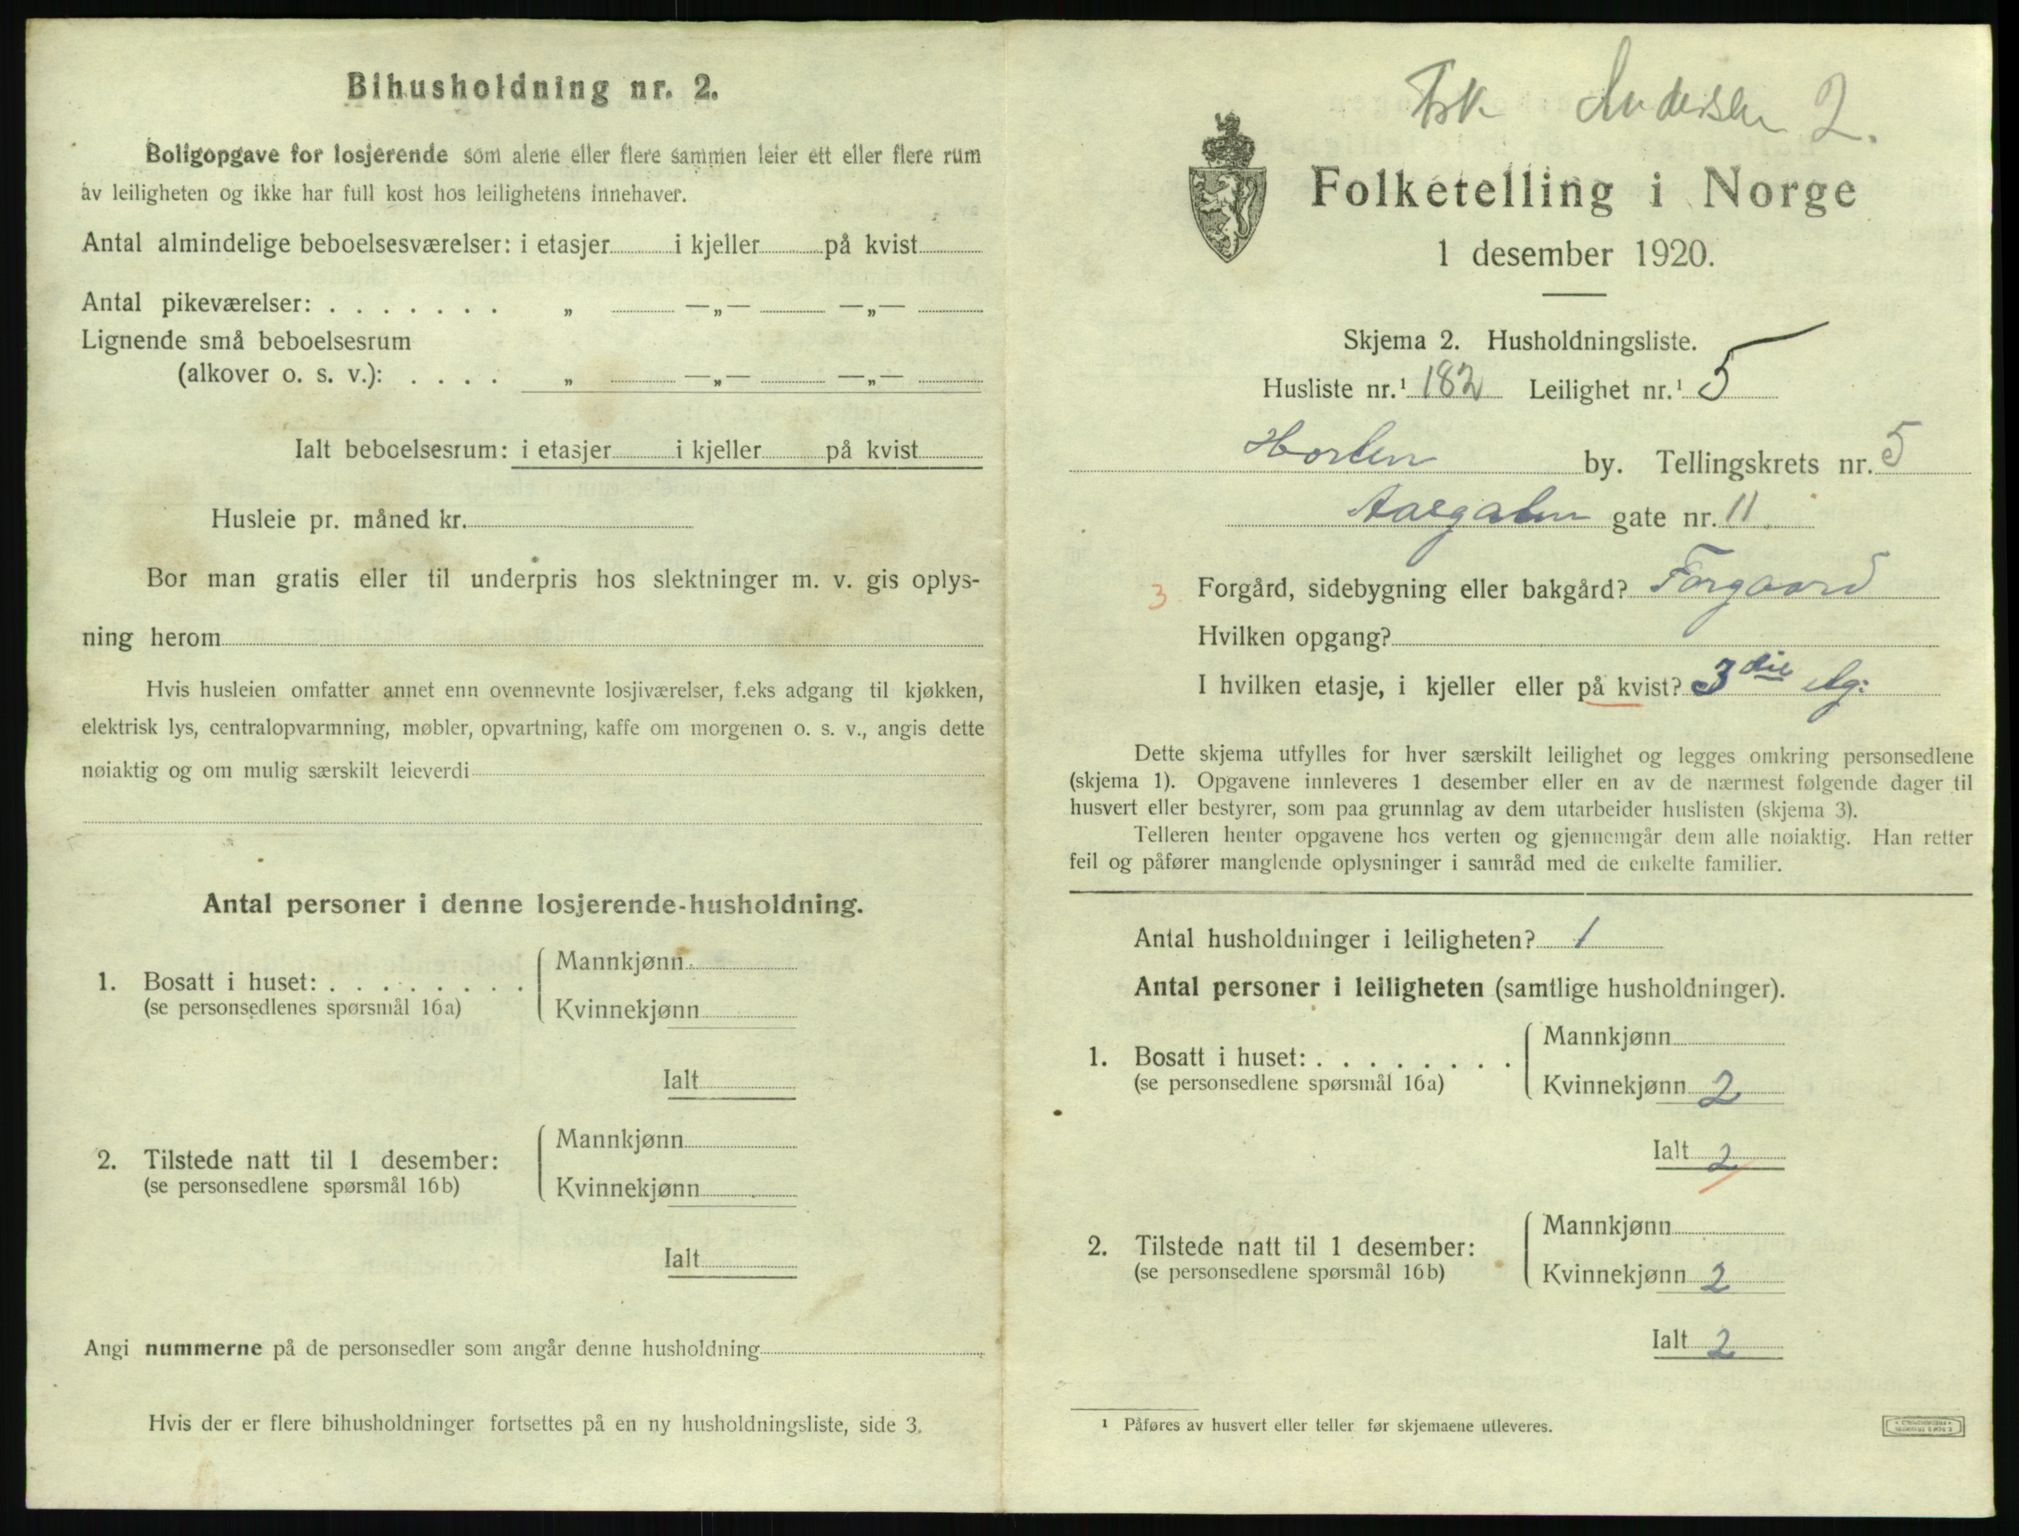 Bihusholdning nr. 2.
Boligopgave for losjerende som alene eller flere sammen leier ett eller flere rum
av leiligheten og ikke har full kost hos leilighetens innehaver.
Antal almindelige beboelsesværelser: i etasjer i kjeller på kvist
Antal pikeværelser: . . . . . . . „ —„— —„—
Lignende små beboelsesrum
(alkover o. s. v.): . . . . „ —„— —„—
Ialt beboelsesrum: i etasjer i kjeller på kvist
Husleie pr. måned kr.
Bor man gratis eller til underpris hos slektninger m. v. gis oplys-
ning herom
Hvis husleien omfatter annet enn ovennevnte losjiværelser, f.eks adgang til kjøkken,
elektrisk lys, centralopvarmning, møbler, opvartning, kaffe om morgenen o. s. v., angis dette
nøiaktig og om mulig særskilt leieverdi
Antal personer i denne losjerende-husholdning.
1. Bosatt i huset: . . . . . . . .
(se personsedlenes spørsmål 16a)
Mannkjønn
Kvinnekjønn
Ialt
2. Tilstede natt til 1 desember:
(se personsedlene spørsmål 16b)
Mannkjønn
Kvinnekjønn
Ialt
Angi nummerne på de personsedler som angår denne husholdning
Hvis der er flere bihusholdninger fortsettes på en ny husholdningsliste, side 3.
Frk Andersen 2.
Folketelling i Norge
1 desember 1920.
Skjema 2. Husholdningsliste.
Husliste nr.¹ 182 Leilighet nr.¹ 5
Horten by. Tellingskrets nr. 5
Aasgaten gate nr. 11
3 Forgård, sidebygning eller bakgård? Forgaard
Hvilken opgang?
I hvilken etasje, i kjeller eller på kvist? 3die etg:
Dette skjema utfylles for hver særskilt leilighet og legges omkring personsedlene
(skjema 1). Opgavene innleveres 1 desember eller en av de nærmest følgende dager til
husvert eller bestyrer, som paa grunnlag av dem utarbeider huslisten (skjema 3).
Telleren henter opgavene hos verten og gjennemgår dem alle nøiaktig. Han retter
feil og påfører manglende oplysninger i samråd med de enkelte familier.
Antal husholdninger i leiligheten? 1
Antal personer i leiligheten (samtlige husholdninger).
1. Bosatt i huset: . . . . . . . .
(se personsedlene spørsmål 16a)
Mannkjønn
Kvinnekjønn 2
Ialt 2
2. Tilstede natt til 1 desember:
(se personsedlene spørsmål 16b)
Mannkjønn
Kvinnekjønn 2
Ialt 2
¹ Påføres av husvert eller teller før skjemaene utleveres.